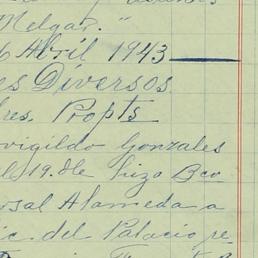 Melgar."
6 Abril 1943
es Diversos
res. Propts
vigildo Gonzales
l, 19. He hizo Bco
osal Alameda a
ic. del Palacio re